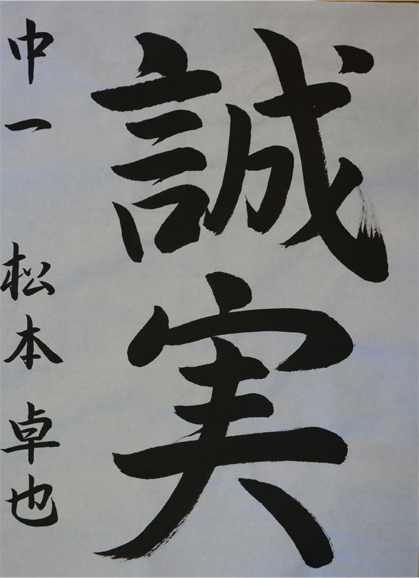 誠実
中一 松本卓也